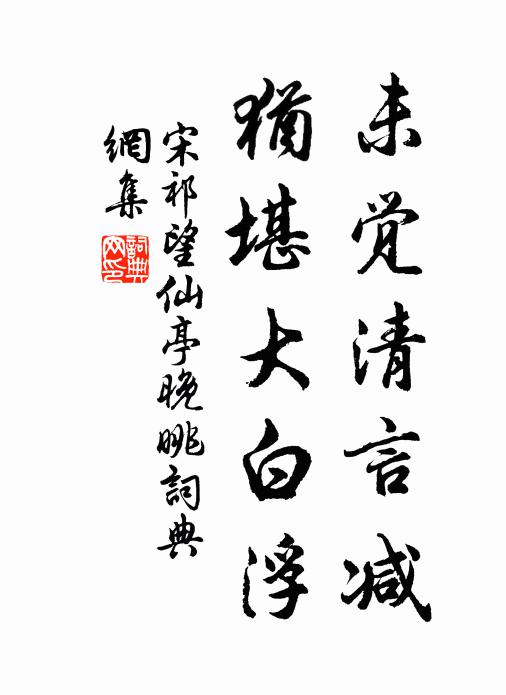 未觉清言减
犹堪大白浮
宋祁望仙亭晚眺词典
網集
詞典
网印